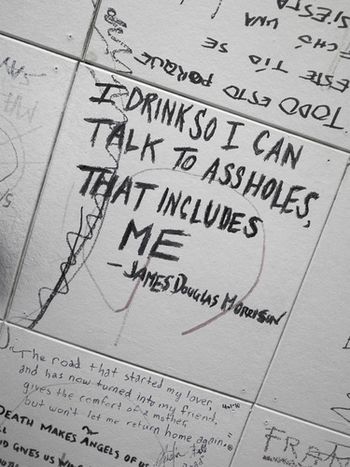 TODO ESTO PORQUE
ESTE TÍO SE
ECHÓ UNA
SIESTA
I DRINK SO I CAN
TALK TO ASSHOLES,
THAT INCLUDES
ME
— JAMES DOUGLAS MORRISON
The road that started my lover,
and has now turned into my friend,
gives the comfort of a mother
but won't let me return home again
DEATH MAKES ANGELS OF US
GIVES US